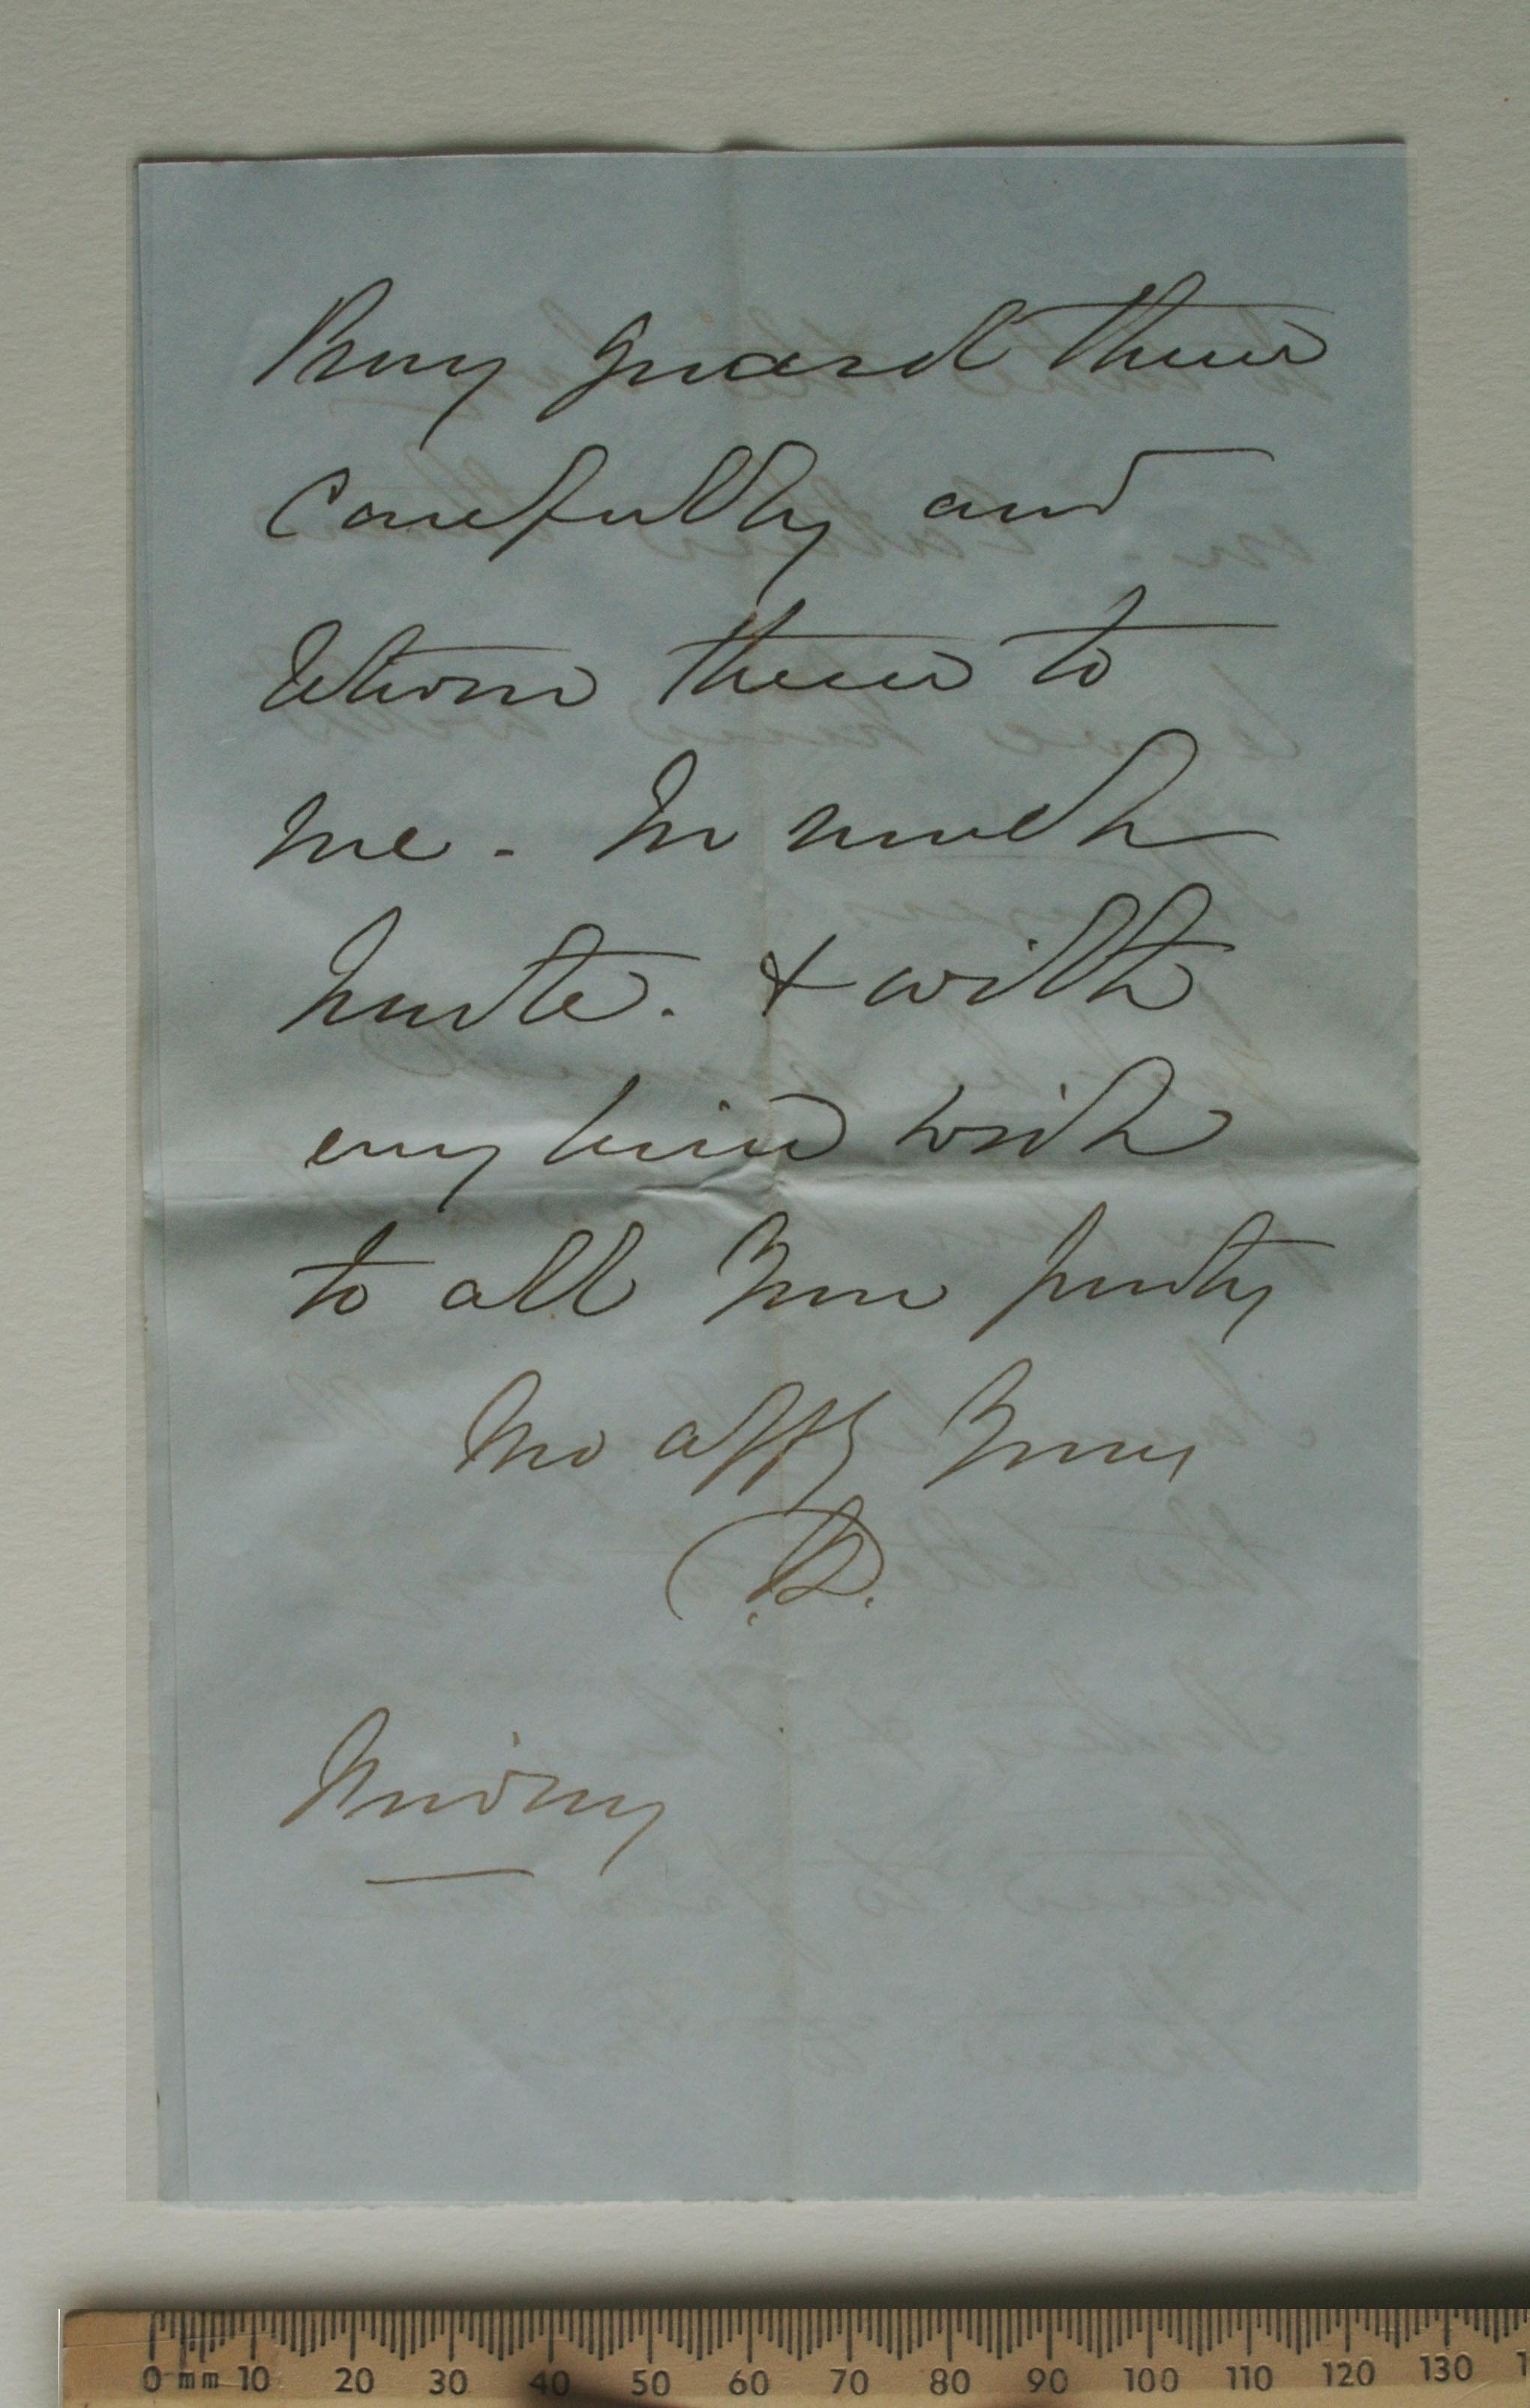 Pray guard them
carefully and
return them to
me. In much
haste. & with
every kind wish
to all your party
Mo affy yours
D.
Friday
0 mm 10 20 30 40 50 60 70 80 90 100 110 120 130